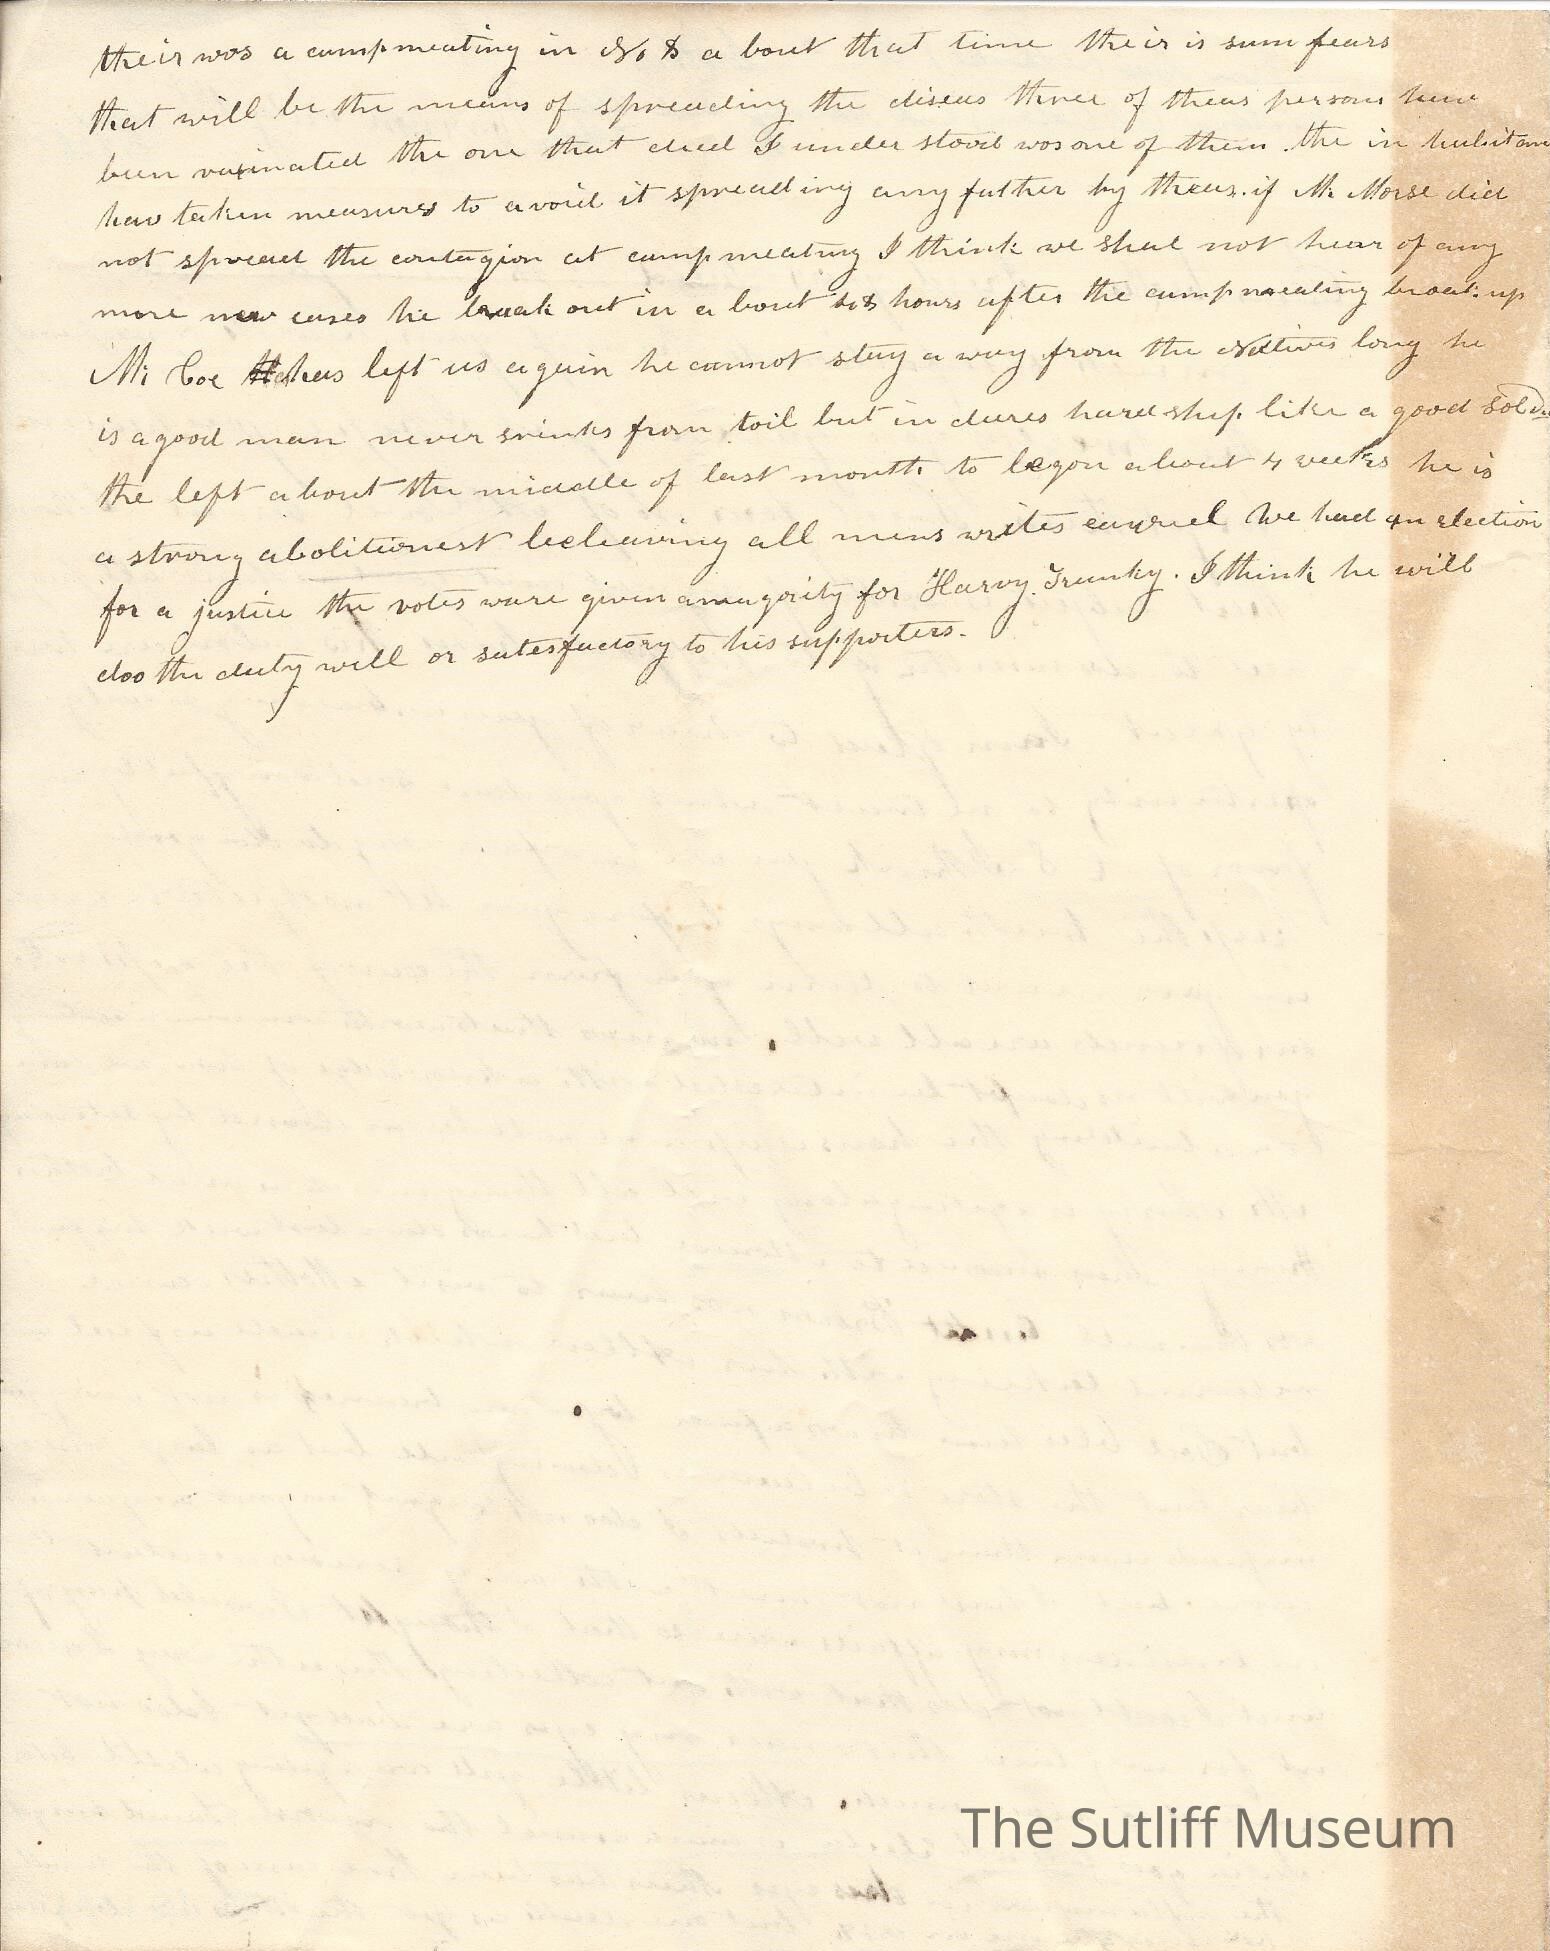 their was a campmeating in No 8 a bout that time their is sum fears
that will be the means of spreading the diseas three of theas persons have
been vaxinated the one that died I under stood was one of them . the in habitan
hav taken measures to avoid it spreading any futher by theas. if Mr Morse did
not spread the contagion at campmeating I think we shal not hear of any
more new cases he break out in a bout 48 hours after the campmeating broak up
Mr Coe has left us again he cannot stay a way from the Natives long he
is a good man never srinks from toil but in dures hardship like a good sold
the left about the middle of last month to begon about 4 weeks he is
a strong abolitionest beeleaving all mens writes eaquel We had an election
for a justice the votes ware given a magority for Harvy . I think he will
doo the duty will or satesfactory to his supporters.
The Sutliff Museum